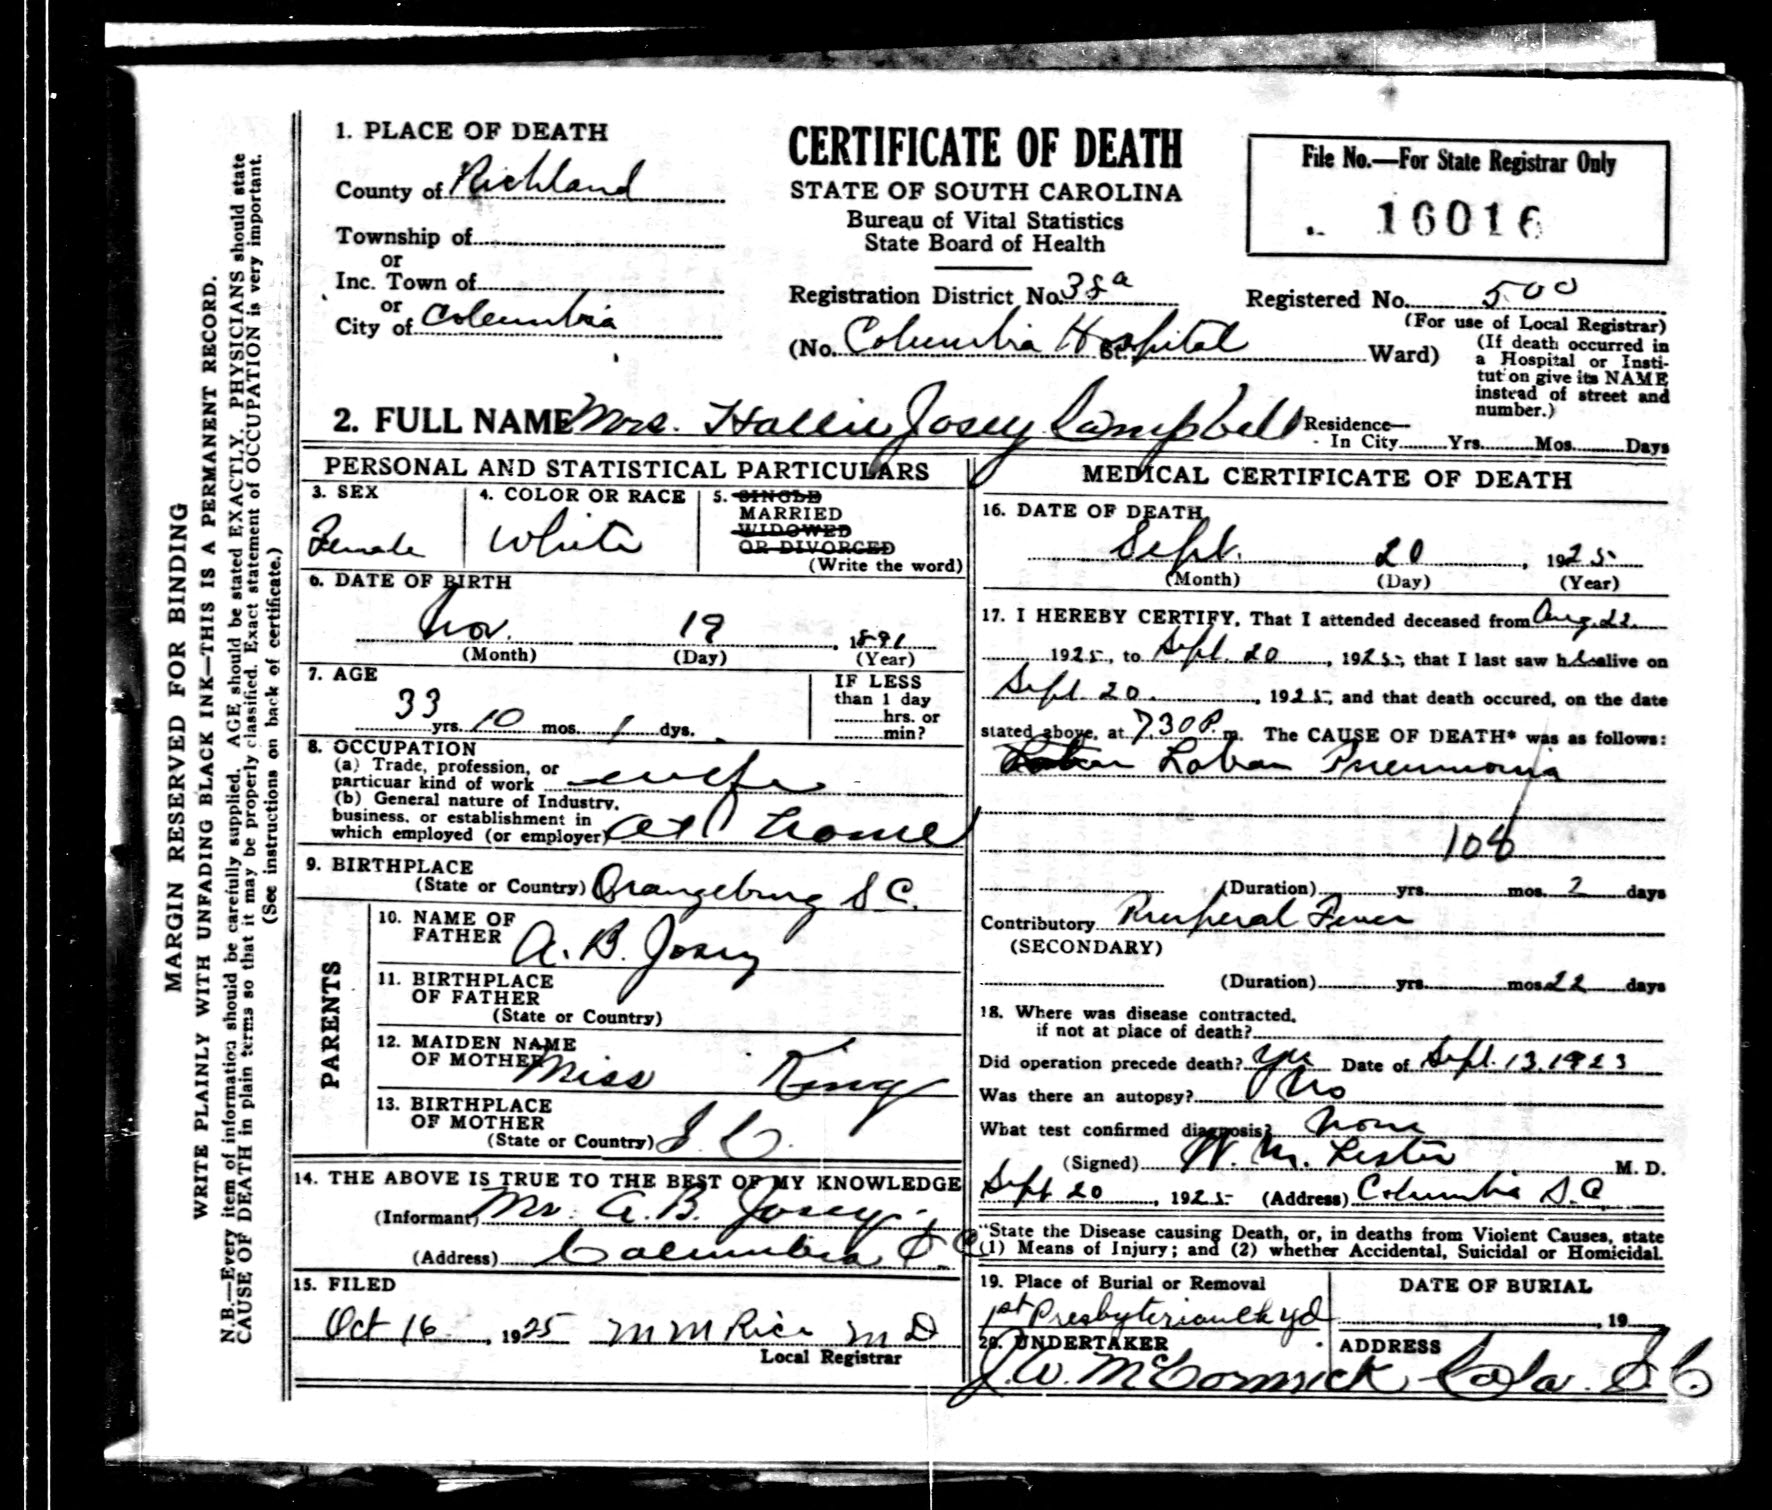 MARGIN RESERVED FOR BINDING
WRITE PLAINLY WITH UNFADING BLACK INK—THIS IS A PERMANENT RECORD.
N.B.—Every item of information should be carefully supplied. AGE should be stated EXACTLY. PHYSICIANS should state
CAUSE OF DEATH in plain terms so that it may be properly classified. Exact statement of OCCUPATION is very important.
(See instructions on back of certificate.)
CERTIFICATE OF DEATH
STATE OF SOUTH CAROLINA
Bureau of Vital Statistics
State Board of Health
File No.—For State Registrar Only
16016
1. PLACE OF DEATH
County of Richland
Township of
or
Inc. Town of
or
City of Columbia
Registration District No. 38a
Registered No. 500
(For use of Local Registrar)
(No. Columbia Hospital St. Ward)
(If death occurred in
a Hospital or Insti-
tut on give its NAME
instead of street and
number.)
2. FULL NAME Mrs. Hallie Josey Campbell
Residence—
In City Yrs. Mos. Days
PERSONAL AND STATISTICAL PARTICULARS
3. SEX
Female
4. COLOR OR RACE
White
5. SINGLE
MARRIED
WIDOWED
OR DIVORCED
(Write the word)
6. DATE OF BIRTH
Nov. 19, 1891
(Month) (Day) (Year)
7. AGE
33 yrs. 10 mos. 1 dys.
IF LESS
than 1 day
hrs. or
min?
8. OCCUPATION
(a) Trade, profession, or
particuar kind of work wife
(b) General nature of Industry,
business, or establishment in
which employed (or employer) at home
9. BIRTHPLACE
(State or Country) Orangeburg S C.
PARENTS
10. NAME OF
FATHER A. B. Josey
11. BIRTHPLACE
OF FATHER
(State or Country)
12. MAIDEN NAME
OF MOTHER Miss King
13. BIRTHPLACE
OF MOTHER
(State or Country) S. C.
14. THE ABOVE IS TRUE TO THE BEST OF MY KNOWLEDGE
(Informant) Mr. A. B. Josey
(Address) Columbia S C
15. FILED
Oct 16, 1925 M M Rice M D
Local Registrar
MEDICAL CERTIFICATE OF DEATH
16. DATE OF DEATH
Sept. 20, 1925
(Month) (Day) (Year)
17. I HEREBY CERTIFY, That I attended deceased from Aug. 22
1925, to Sept. 20, 1925, that I last saw her alive on
Sept 20, 1925, and that death occured, on the date
stated above, at 7 30 P. m. The CAUSE OF DEATH* was as follows:
Lobar Pneumonia
108
(Duration) yrs. mos. 2 days
Contributory Puerperal Fever
(SECONDARY)
(Duration) yrs. mos. 22 days
18. Where was disease contracted,
if not at place of death?
Did operation precede death? yes Date of Sept. 13, 1923
Was there an autopsy? No
What test confirmed diagnosis? None
(Signed) W. M. Lester M. D.
Sept 20, 1925 (Address) Columbia S.C
*State the Disease causing Death, or, in deaths from Violent Causes, state
(1) Means of Injury; and (2) whether Accidental, Suicidal or Homicidal.
19. Place of Burial or Removal
1st Presbyterian Ch yd
DATE OF BURIAL
, 19
20. UNDERTAKER
J. W. McCormick
ADDRESS
Cola. S. C